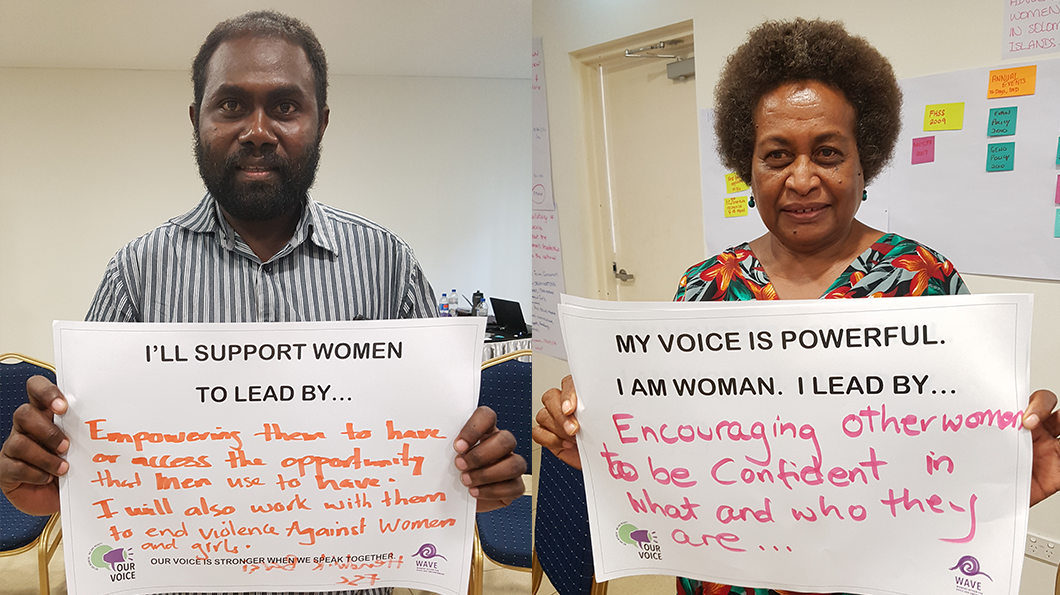 I'LL SUPPORT WOMEN
TO LEAD BY...
Empowering them to have
or access the opportunity
that Men use to have.
I will also work with them
to end violence Against Women
and girls.
OUR VOICE IS STRONGER WHEN WE SPEAK TOGETHER.
OUR
VOICE
WAVE
MY VOICE IS POWERFUL.
I AM WOMAN. I LEAD BY...
Encouraging other women
to be Confident in
what and who they
are...
OUR
VOICE
WAVE
WOMEN
IN SOLOM
ISLANDS
ANNUAL
EVENTS
FHSS
2009
Policy
2010
Policy